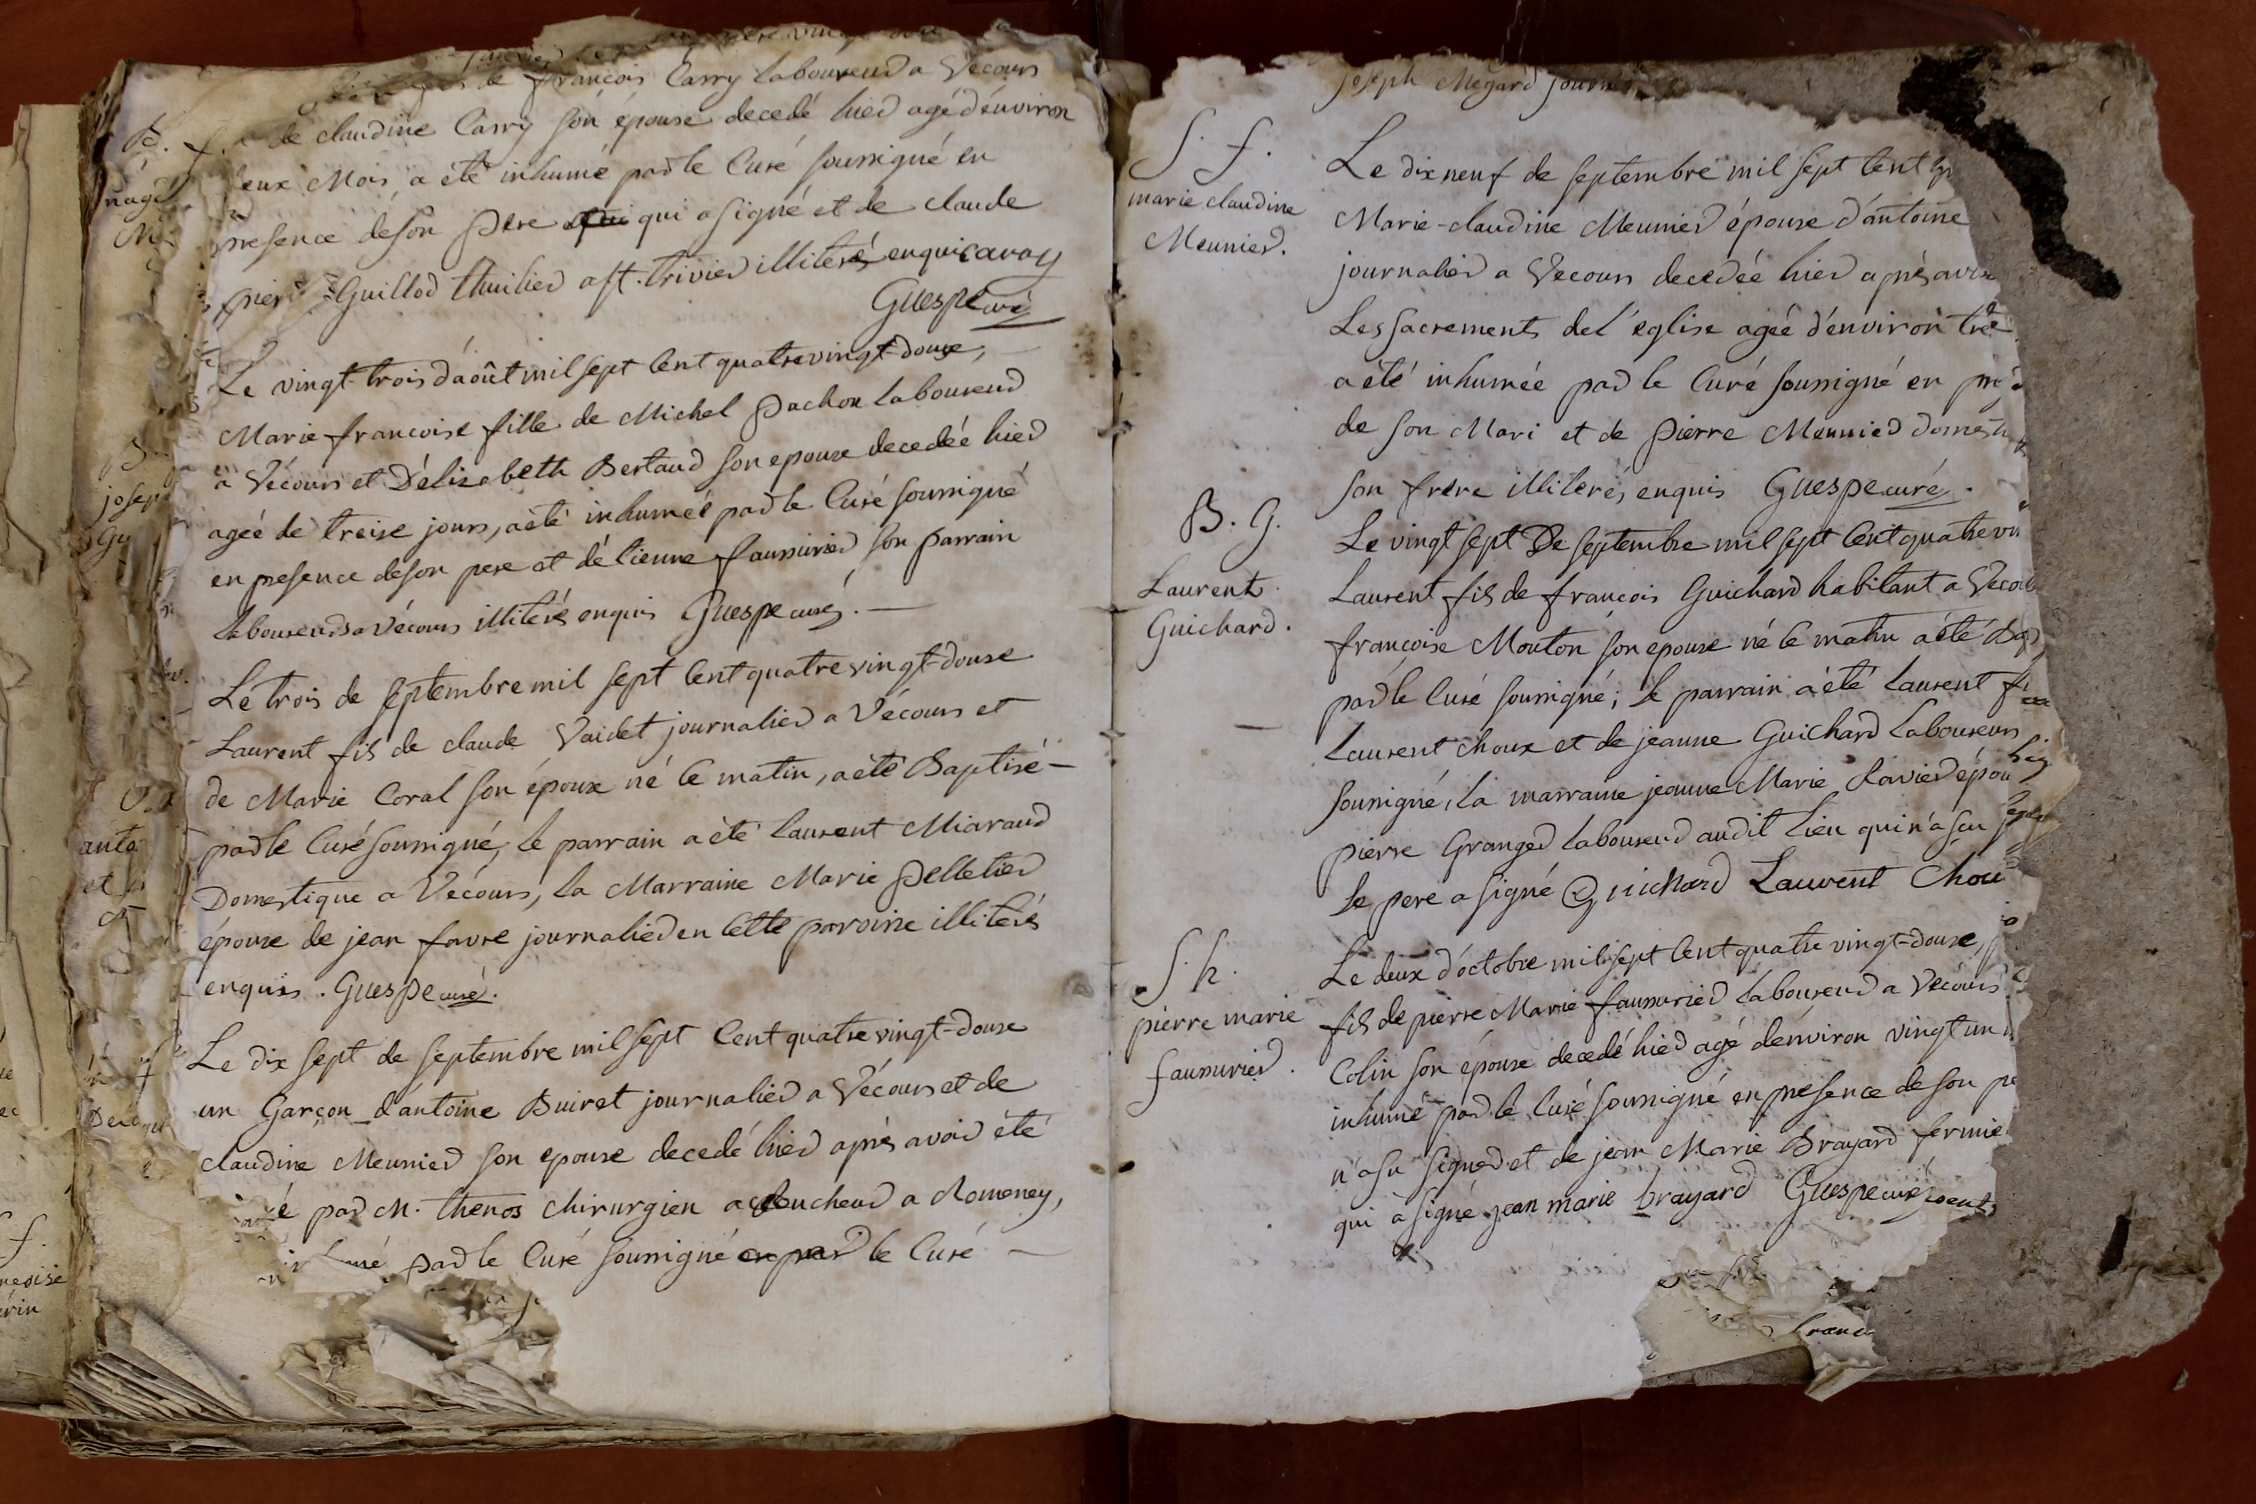 de françois Carry laboureur a Vecours
de claudine Carry son épouse decedé hier agé d'environ
deux Mois, a été inhumé par le Curé soussigné en
presence de son Pere qui a signé et de claude
Guillod thuilier a st. trivier illiterés enquis caray
Guespe curé
Le vingt-trois d'août mil sept Cent quatre vingt-douze,
Marie françoise fille de Michel Pachon laboureur
a Vécours et D'élizabeth Bertaud son epouse decedée hier
agée de treise jours, a été inhumée par le Curé soussigné
en presence de son pere et d'étienne faussurier son parrain
laboureurs a Vécours illiterés enquis Guespe curé. —
Le trois de septembre mil sept Cent quatre vingt-douze
Laurent fils de claude Vaidet journalier a Vécours et
de Marie Coral son épouse né ce matin, a été Baptisé —
par le Curé soussigné, le parrain a été laurent Miaraud
Domestique a Vécours, la Marraine Marie Pelletier
épouse de jean favre journalier en cette paroisse illiterés
enquis. Guespe curé.
Le dix sept de septembre mil sept Cent quatre vingt-douze
un Garçon d'antoine Buiret journalier a Vécours et de
claudine Meunier son epouse decedé hier après avoir été
par M. thenos chirurgien accoucheur a Romeney,
par le Curé soussigné le Curé —
joseph Mégard
S. f.
marie claudine
Meunier.
Le dix neuf de septembre mil sept Cent
Marie-claudine Meunier épouse d'antoine
journalier a Vecours decedée hier après
Les sacrements de l'eglise agée d'environ
a été inhumée par le Curé soussigné en
de son Mari et de Pierre Meunier
son frere illiterés enquis Guespe curé.
B. G.
Laurent
Guichard.
Le vingt sept De septembre mil sept Cent quatre
Laurent fils de françois Guichard habitant a
françoise Mouton son epouse né ce matin a été
par le Curé soussigné; le parrain a été laurent
Laurent choux et de jeanne Guichard laboureurs
soussigné, la marraine jeanne Marie Ravier
pierre Granger laboureur audit lieu qui n'a scu
le pere a signé Guichard Laurent Chou
S. h.
pierre marie
faussurier.
Le deux d'octobre mil sept Cent quatre vingt-douze,
fils de pierre Marie faussurier laboureur a Vécours
Colin son épouse decedé hier agé d'environ vingt un
inhumé par le Curé soussigné en presence de son
n'a su signer et de jean Marie Brayard
qui a signé jean marie brayard Guespe curé